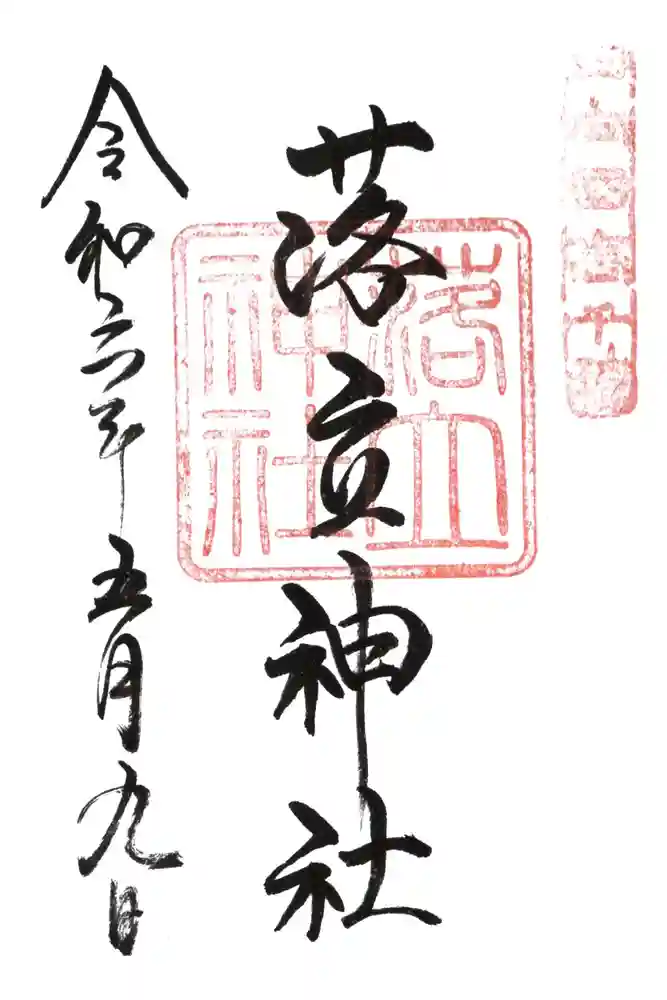 落立神社
落立
神社
令和六年五月九日